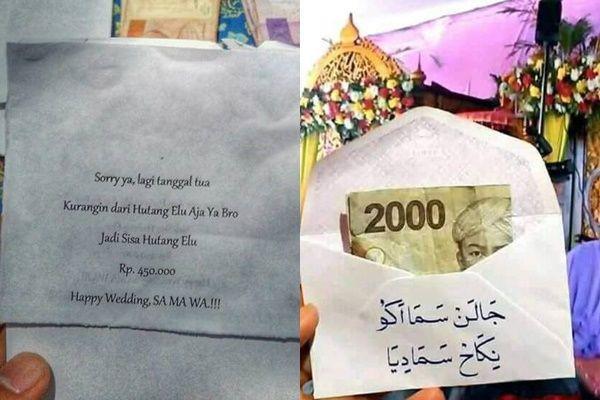 Sorry ya, lagi tanggal tua
Kurangin dari Hutang Elu Aja Ya Bro
Jadi Sisa Hutang Elu
Rp. 450.000
Happy Wedding, SA MA WA.!!!
2000
جَالَنْ سَمَا اَكُوْ
نِكَاحْ سَمَادِيَا